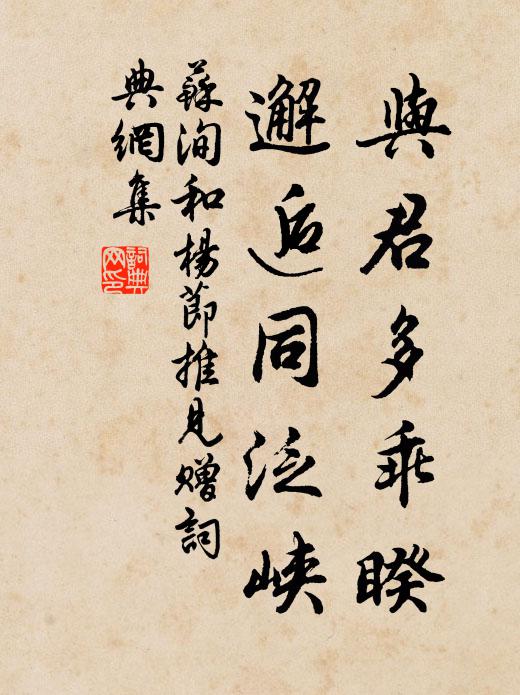 與君多乖暌
邂逅同泛峽
蘇洵和楊節推見贈詞
典網集
詞典
网印